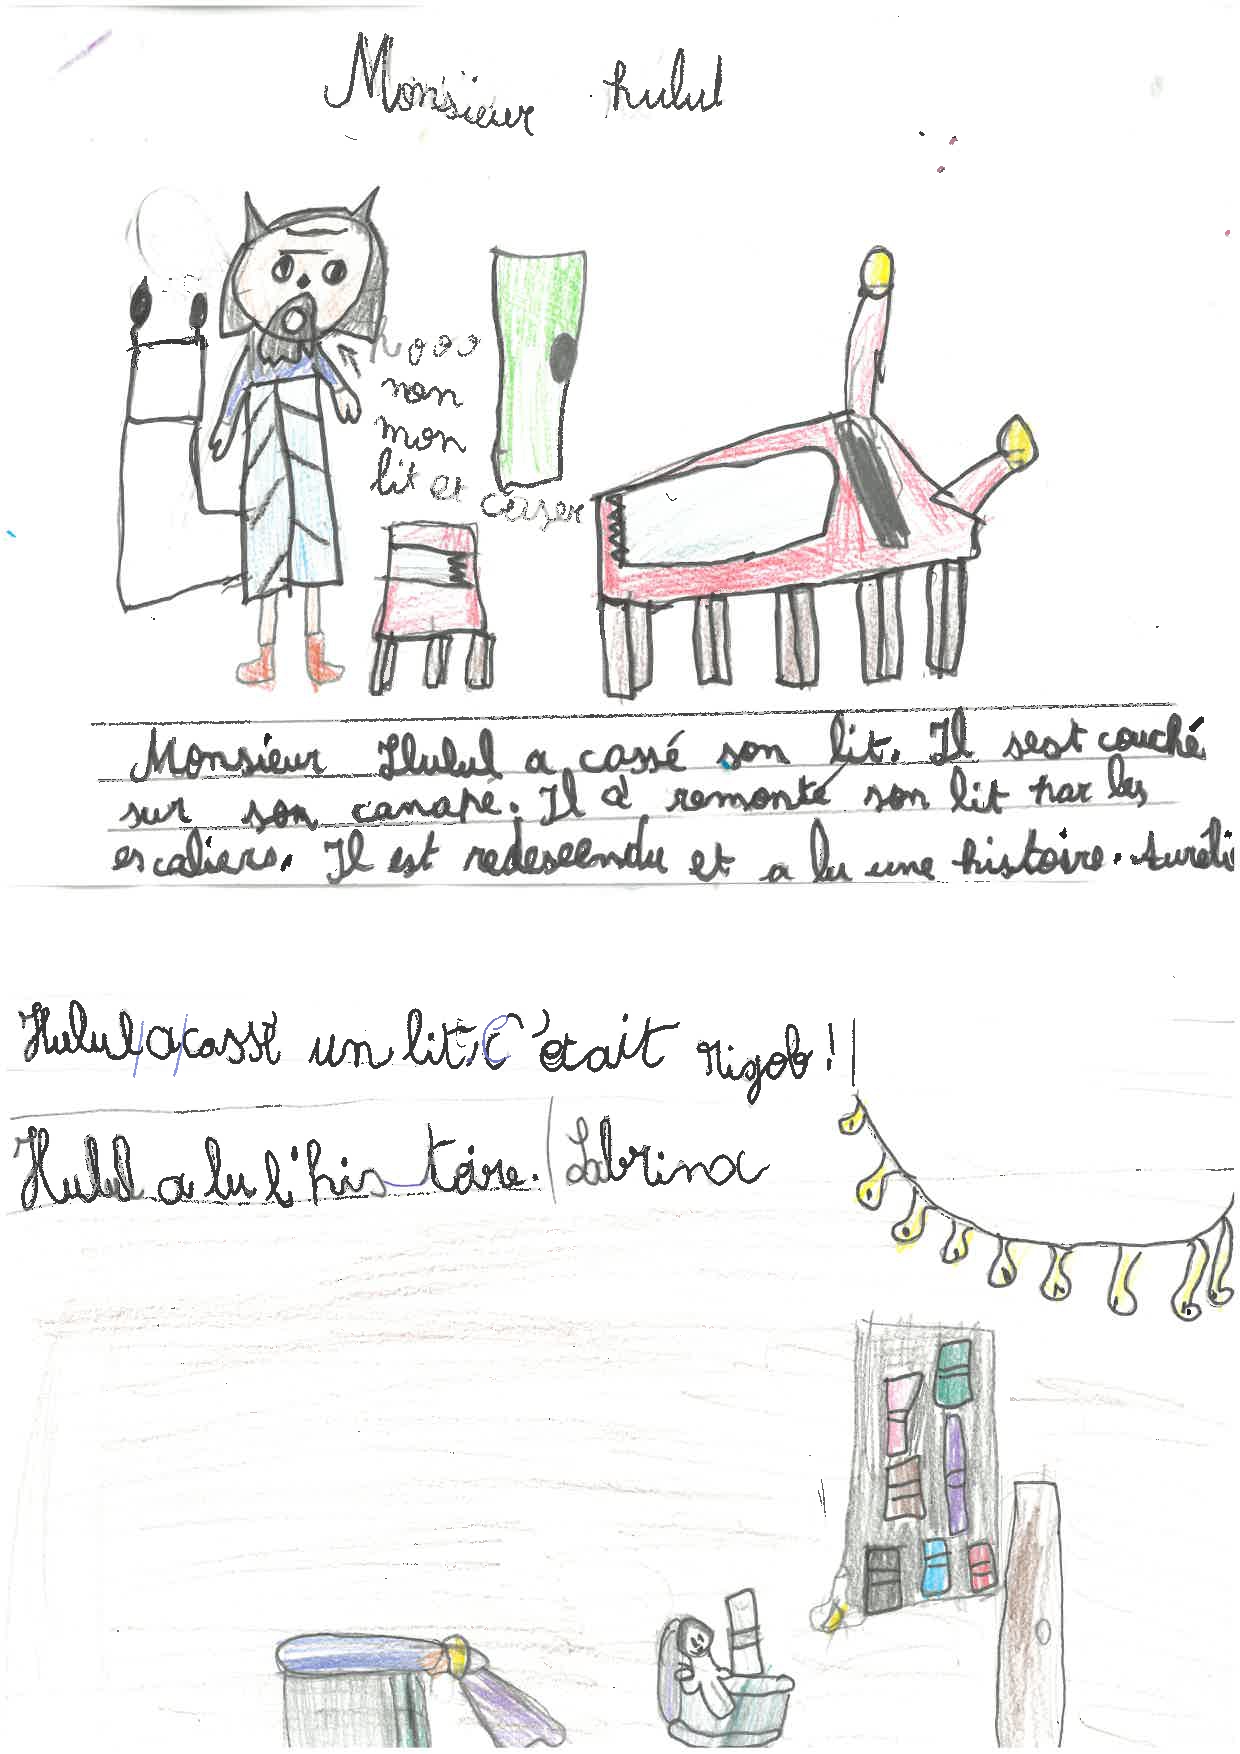 Monsieur hulul
hooo
non
mon
lit et
céser
Monsieur Hulul a cassé son lit. Il sest couché
sur son canapé. Il a remonté son lit par les
escaliers. Il est redescendu et a lu une histoire. Auréli
Hulul a cassé un lit. C'était rigob !
Hulul a lu l'histoire. Sabrina